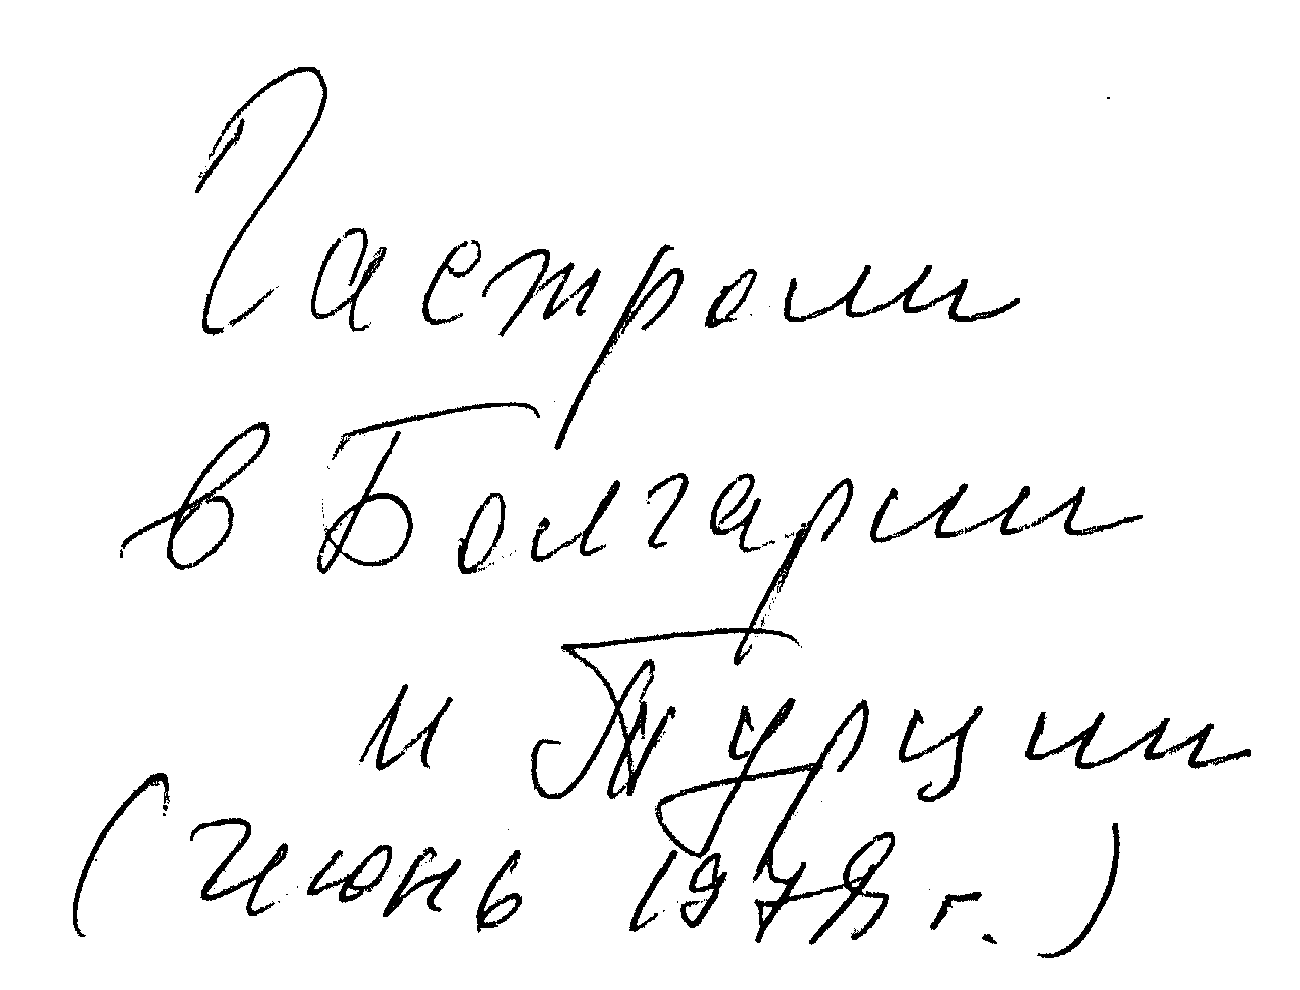 Гастроли
в Болгарии
и Турции
(июнь 1978 г.)